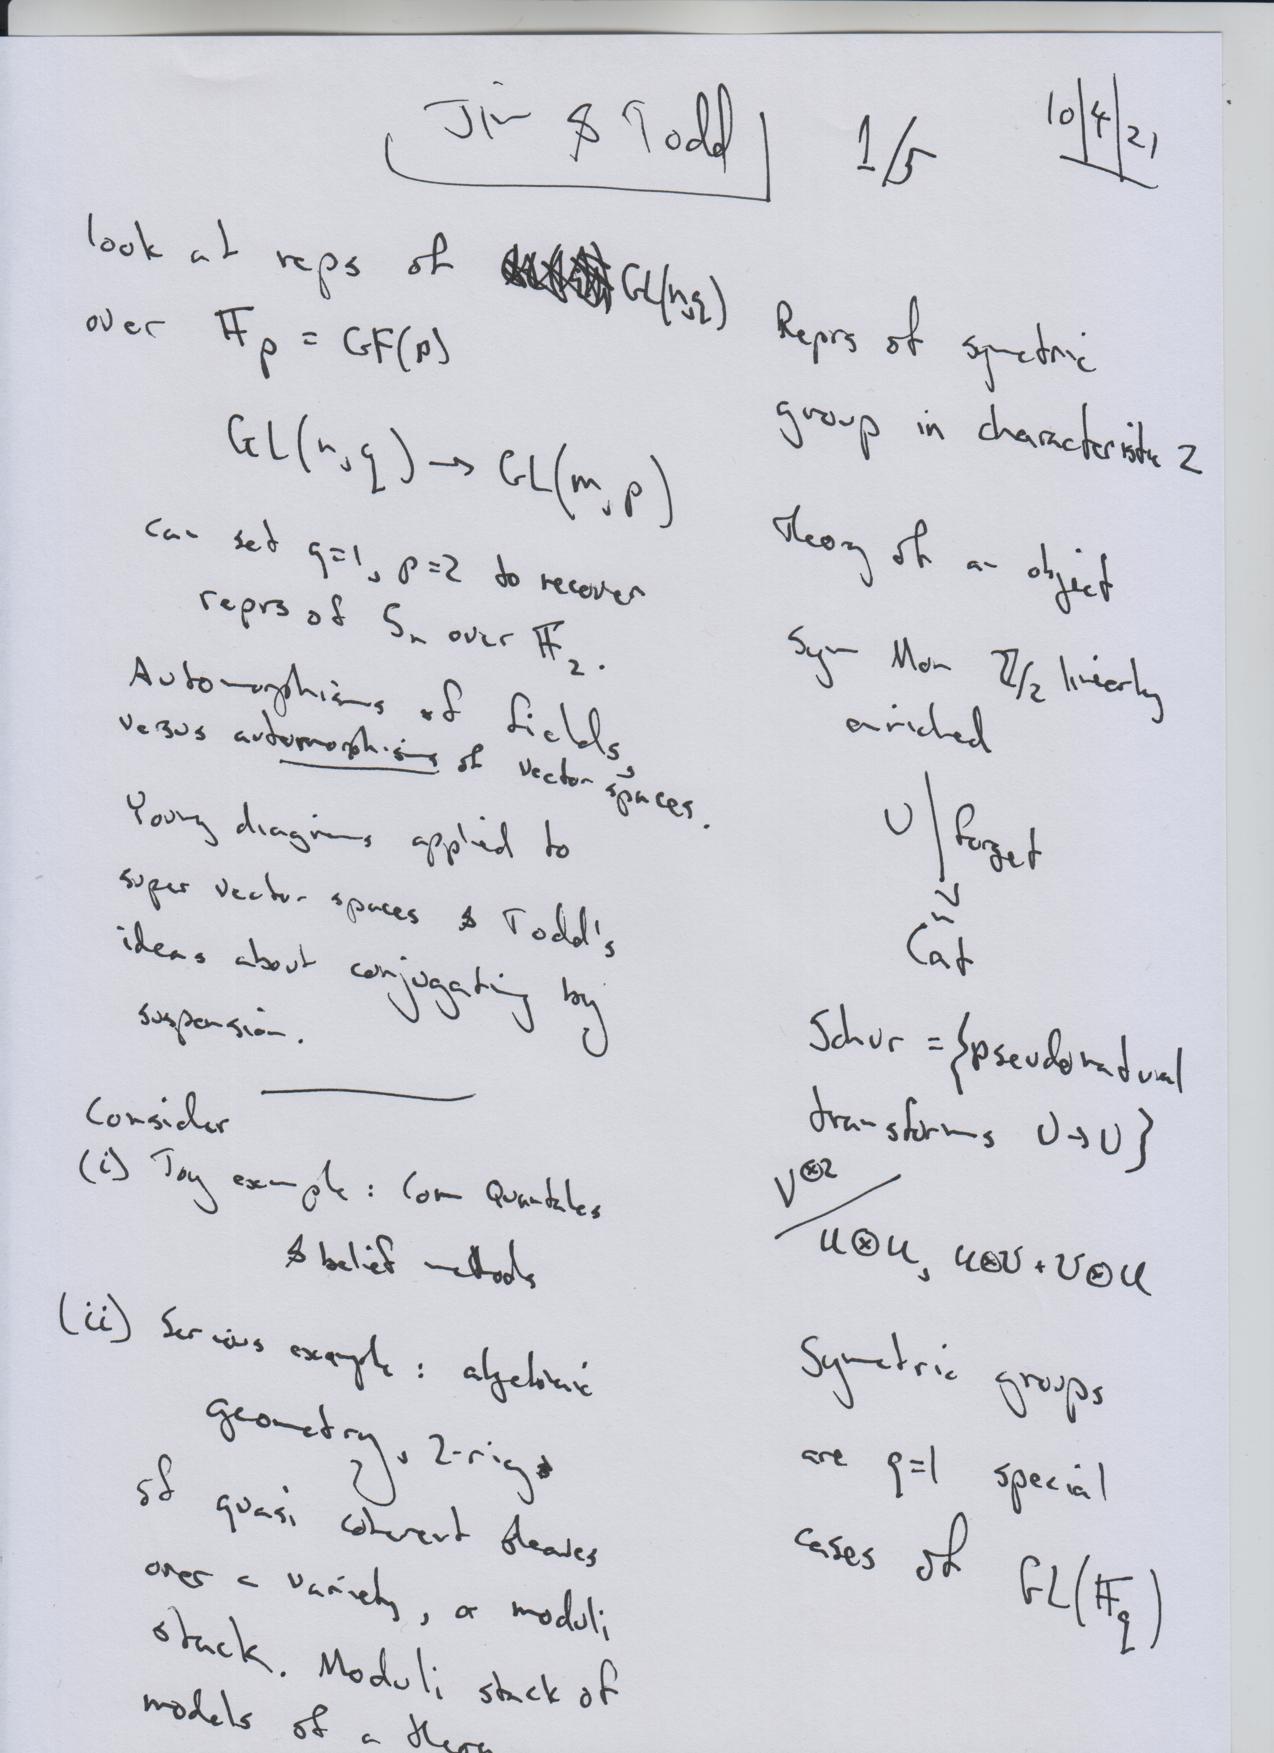 Jim & Todd
1/5
10|4|21
look at reps of GL(n,q)
over 𝔽p = GF(p)
GL(n,q) → GL(m,p)
can set q=1, p=2 to recover
reprs of Sn over 𝔽2.
Automorphisms of fields,
versus automorphisms of vector spaces.
Young diagrams applied to
super vector spaces & Todd's
ideas about conjugating by
suspension.
Consider
(i) Toy example: Com Quantales
& belief methods
(ii) Serious example: algebraic
geometry, 2-rigs
of quasi coherent sheaves
over a variety, or moduli
stack. Moduli stack of
models of a theory
Reprs of symetric
group in characteristic 2
theory of an object
Sym Mon ℤ/2 linearly
enriched
U ↓ forget
Cat
Schur = {pseudonatural
transforms U→U}
V⊗2 / u⊗u, u⊗v + v⊗u
Symetric groups
are q=1 special
cases of GL(𝔽q)